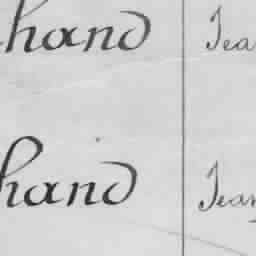 hand Jea
hand Jean